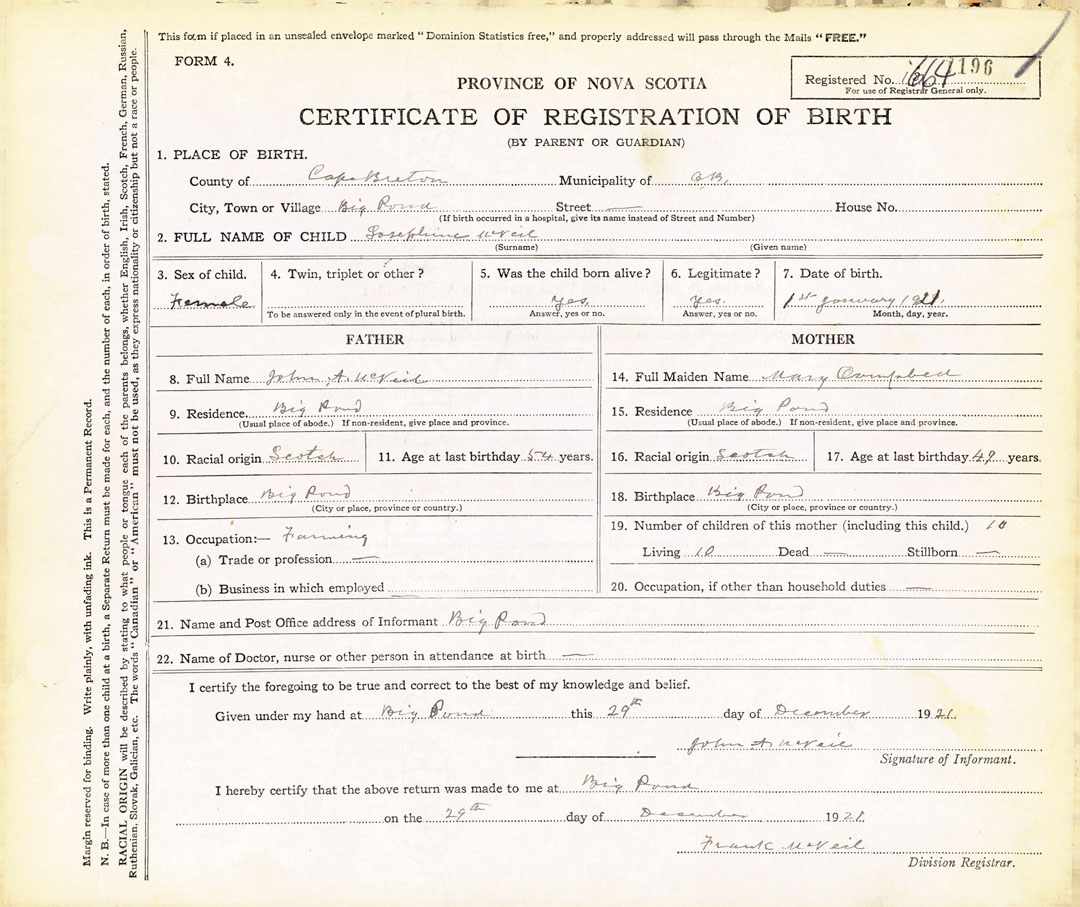 This form if placed in an unsealed envelope marked "Dominion Statistics free," and properly addressed will pass through the Mails "FREE."
FORM 4.
Registered No. 664 1196
For use of Registrar General only.
PROVINCE OF NOVA SCOTIA
CERTIFICATE OF REGISTRATION OF BIRTH
(BY PARENT OR GUARDIAN)
1. PLACE OF BIRTH.
County of Cape Breton Municipality of C.B.
City, Town or Village Big Pond Street — House No.
(If birth occurred in a hospital, give its name instead of Street and Number)
2. FULL NAME OF CHILD Josephine McNeil
(Surname) (Given name)
3. Sex of child. 4. Twin, triplet or other? 5. Was the child born alive? 6. Legitimate? 7. Date of birth.
Female Yes. Yes. 1st January 1921.
To be answered only in the event of plural birth. Answer, yes or no. Answer, yes or no. Month, day, year.
FATHER MOTHER
8. Full Name John A. McNeil
9. Residence. Big Pond
(Usual place of abode.) If non-resident, give place and province.
10. Racial origin Scotch 11. Age at last birthday 54 years.
12. Birthplace Big Pond
(City or place, province or country.)
13. Occupation:— Farming
(a) Trade or profession —
(b) Business in which employed
14. Full Maiden Name Mary Campbell
15. Residence Big Pond
(Usual place of abode.) If non-resident, give place and province.
16. Racial origin Scotch 17. Age at last birthday 49 years.
18. Birthplace Big Pond
(City or place, province or country.)
19. Number of children of this mother (including this child.) 10
Living 10 Dead — Stillborn —
20. Occupation, if other than household duties —
21. Name and Post Office address of Informant Big Pond
22. Name of Doctor, nurse or other person in attendance at birth —
I certify the foregoing to be true and correct to the best of my knowledge and belief.
Given under my hand at Big Pond this 29th day of December 1921.
John A McNeil
Signature of Informant.
I hereby certify that the above return was made to me at Big Pond
on the 29th day of December 1921.
Frank McNeil
Division Registrar.
Margin reserved for binding. Write plainly, with unfading ink. This is a Permanent Record.
N. B.—In case of more than one child at a birth, a Separate Return must be made for each, and the number of each, in order of birth, stated.
RACIAL ORIGIN will be described by stating to what people or tongue each of the parents belongs, whether English, Irish, Scotch, French, German, Russian,
Ruthenian, Slovak, Galician, etc. The words "Canadian" or "American" must not be used, as they express nationality or citizenship but not a race or people.